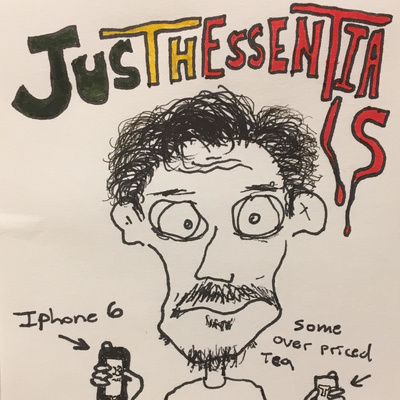 JusTHEssenTIA
lS
Iphone 6
some
over priced
Tea